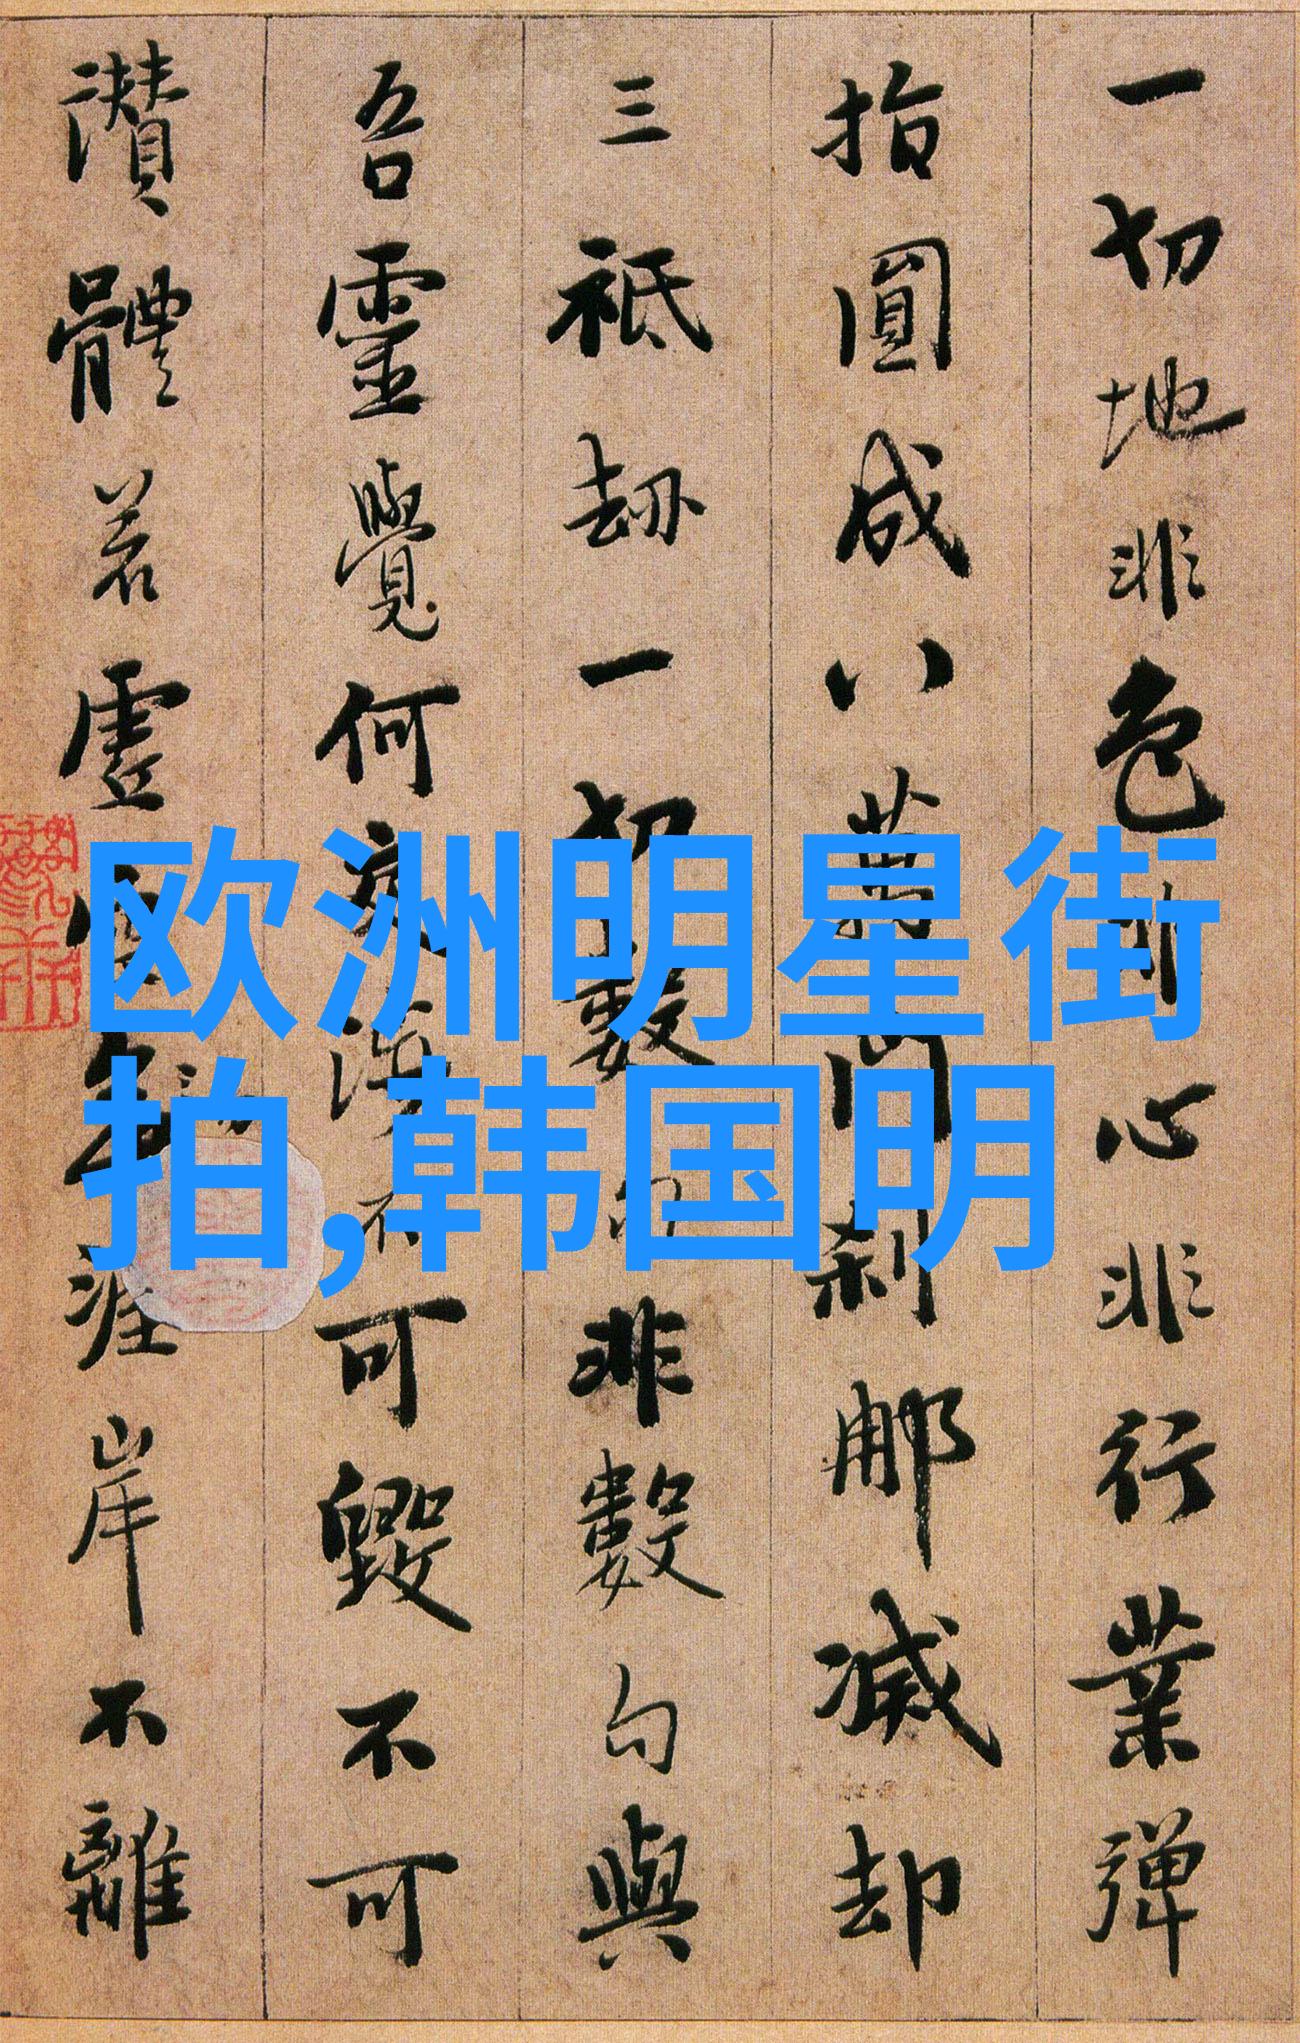 一切地非色非心非行業彈
指圓成八萬門刹那滅却
三祇劫一切數句非數句與
吾靈覺何交涉不可毀不可
讚體若虛空涯岸不離
欧洲明星街
拍,韩国明